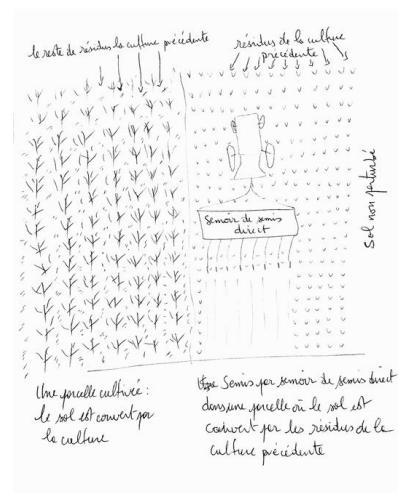 le reste de résidus la culture précédente
résidus de la culture
précédente
Semoir de semis
direct
Sol non perturbé
Une parcelle cultivée :
le sol est couvert par
la culture
Semis par semoir de semis direct
dans une parcelle où le sol est
couvert par les résidus de la
culture précédente